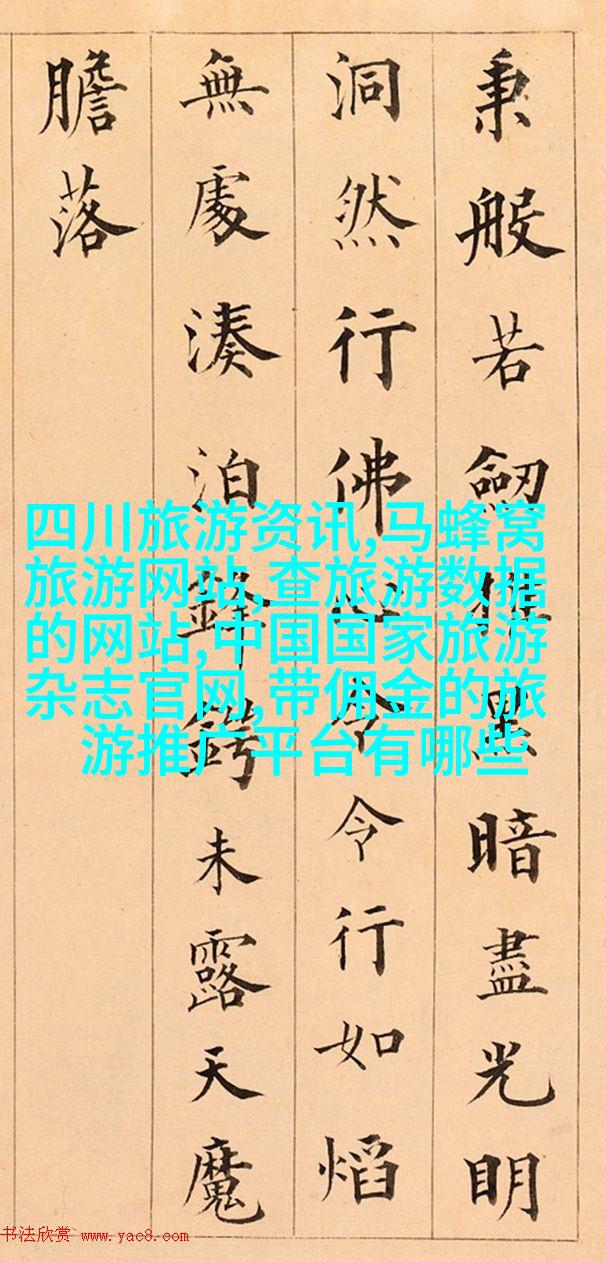 秉般若劔摧黑暗盡光明
洞然行佛心令令行如熖
無處湊泊鋒鍔未露天魔
膽落
四川旅游资讯,马蜂窝
旅游网站,查旅游数据
的网站,中国国家旅游
杂志官网,带佣金的旅
游推广平台有哪些
书法欣赏 www.yac8.com